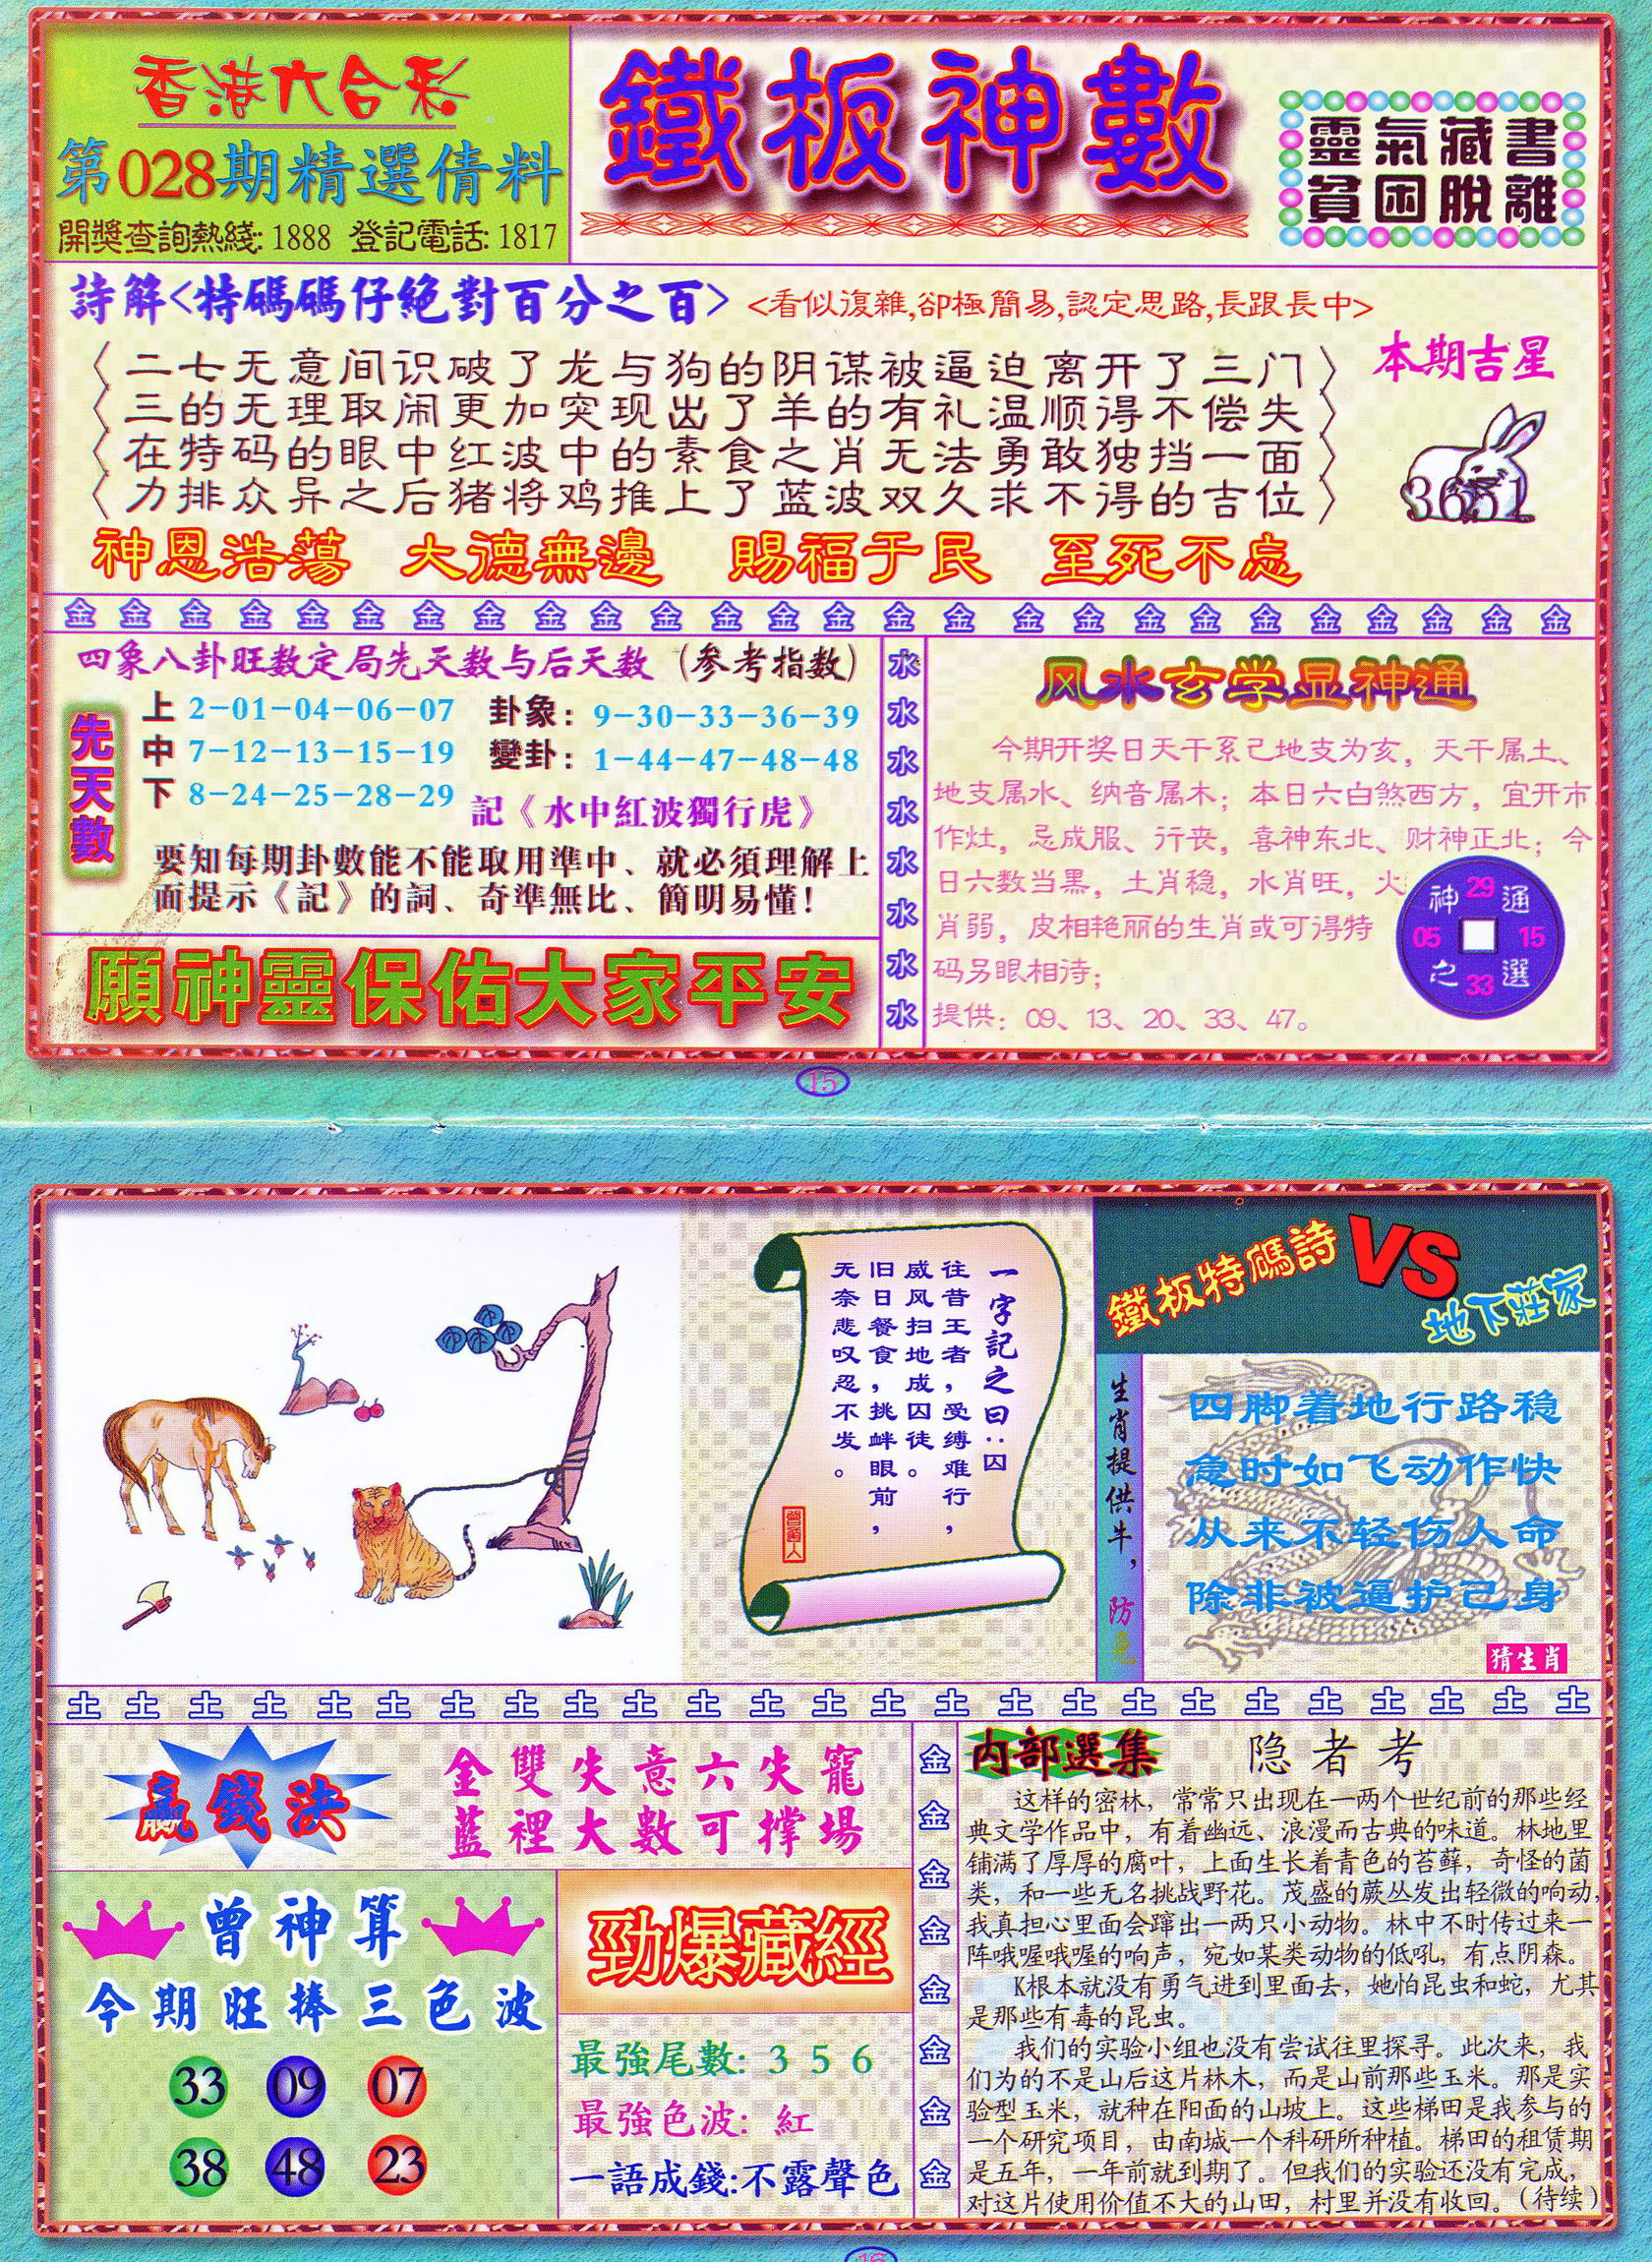 香港六合彩
第028期精選倩料
開獎查詢熱綫: 1888 登記電話: 1817
鐵板神數
靈氣藏書
貧困脫離
詩解<特碼碼仔絕對百分之百>
<看似復雜,卻極簡易,認定思路,長跟長中>
〈二七无意间识破了龙与狗的阴谋被逼迫离开了三门〉
〈三的无理取闹更加突现出了羊的有礼温顺得不偿失〉
〈在特码的眼中红波中的素食之肖无法勇敢独挡一面〉
〈力排众异之后猪将鸡推上了蓝波双久求不得的吉位〉
本期吉星
神恩浩蕩 大德無邊 賜福于民 至死不忘
金 金 金 金 金 金 金 金 金 金 金 金 金 金 金 金 金 金 金 金 金 金 金 金 金 金
四象八卦旺数定局先天数与后天数(参考指数)
先天數
上 2-01-04-06-07 卦象: 9-30-33-36-39
中 7-12-13-15-19 變卦: 1-44-47-48-48
下 8-24-25-28-29
記《水中紅波獨行虎》
要知每期卦數能不能取用準中、就必須理解上
面提示《記》的詞、奇準無比、簡明易懂!
願神靈保佑大家平安
水
水
水
水
水
水
水
水
水
风水玄学显神通
今期开奖日天干系己地支为亥,天干属土、
地支属水、纳音属木;本日六白煞西方,宜开市
作灶,忌成服、行丧,喜神东北、财神正北;今
日六数当黑,土肖稳,水肖旺,火
肖弱,皮相艳丽的生肖或可得特
码另眼相待;
提供:09、13、20、33、47。
神 29 通
05 15
之 33 選
15
一字記之曰:囚
往昔王者,受缚难行,
威风扫地成囚徒。
旧日餐食,挑衅眼前,
无奈悲叹忍不发。
鐵板特碼詩 VS 地下莊家
生肖提供牛,防兔
四脚着地行路稳
急时如飞动作快
从来不轻伤人命
除非被逼护己身
猜生肖
土 土 土 土 土 土 土 土 土 土 土 土 土 土 土 土 土 土 土 土 土 土 土 土 土
贏錢決
金雙失意六失寵
藍裡大數可撐場
曾神算
今期旺捧三色波
33 09 07
38 48 23
勁爆藏經
最強尾數: 3 5 6
最強色波: 紅
一語成錢:不露聲色
金
金
金
金
金
金
金
金
内部選集 隐者考
这样的密林,常常只出现在一两个世纪前的那些经
典文学作品中,有着幽远、浪漫而古典的味道。林地里
铺满了厚厚的腐叶,上面生长着青色的苔藓,奇怪的菌
类,和一些无名挑战野花。茂盛的蕨丛发出轻微的响动,
我真担心里面会蹿出一两只小动物。林中不时传过来一
阵哦喔哦喔的响声,宛如某类动物的低吼,有点阴森。
K根本就没有勇气进到里面去,她怕昆虫和蛇,尤其
是那些有毒的昆虫。
我们的实验小组也没有尝试往里探寻。此次来,我
们为的不是山后这片林木,而是山前那些玉米。那是实
验型玉米,就种在阳面的山坡上。这些梯田是我参与的
一个研究项目,由南城一个科研所种植。梯田的租赁期
是五年,一年前就到期了。但我们的实验还没有完成,
对这片使用价值不大的山田,村里并没有收回。(待续)
16